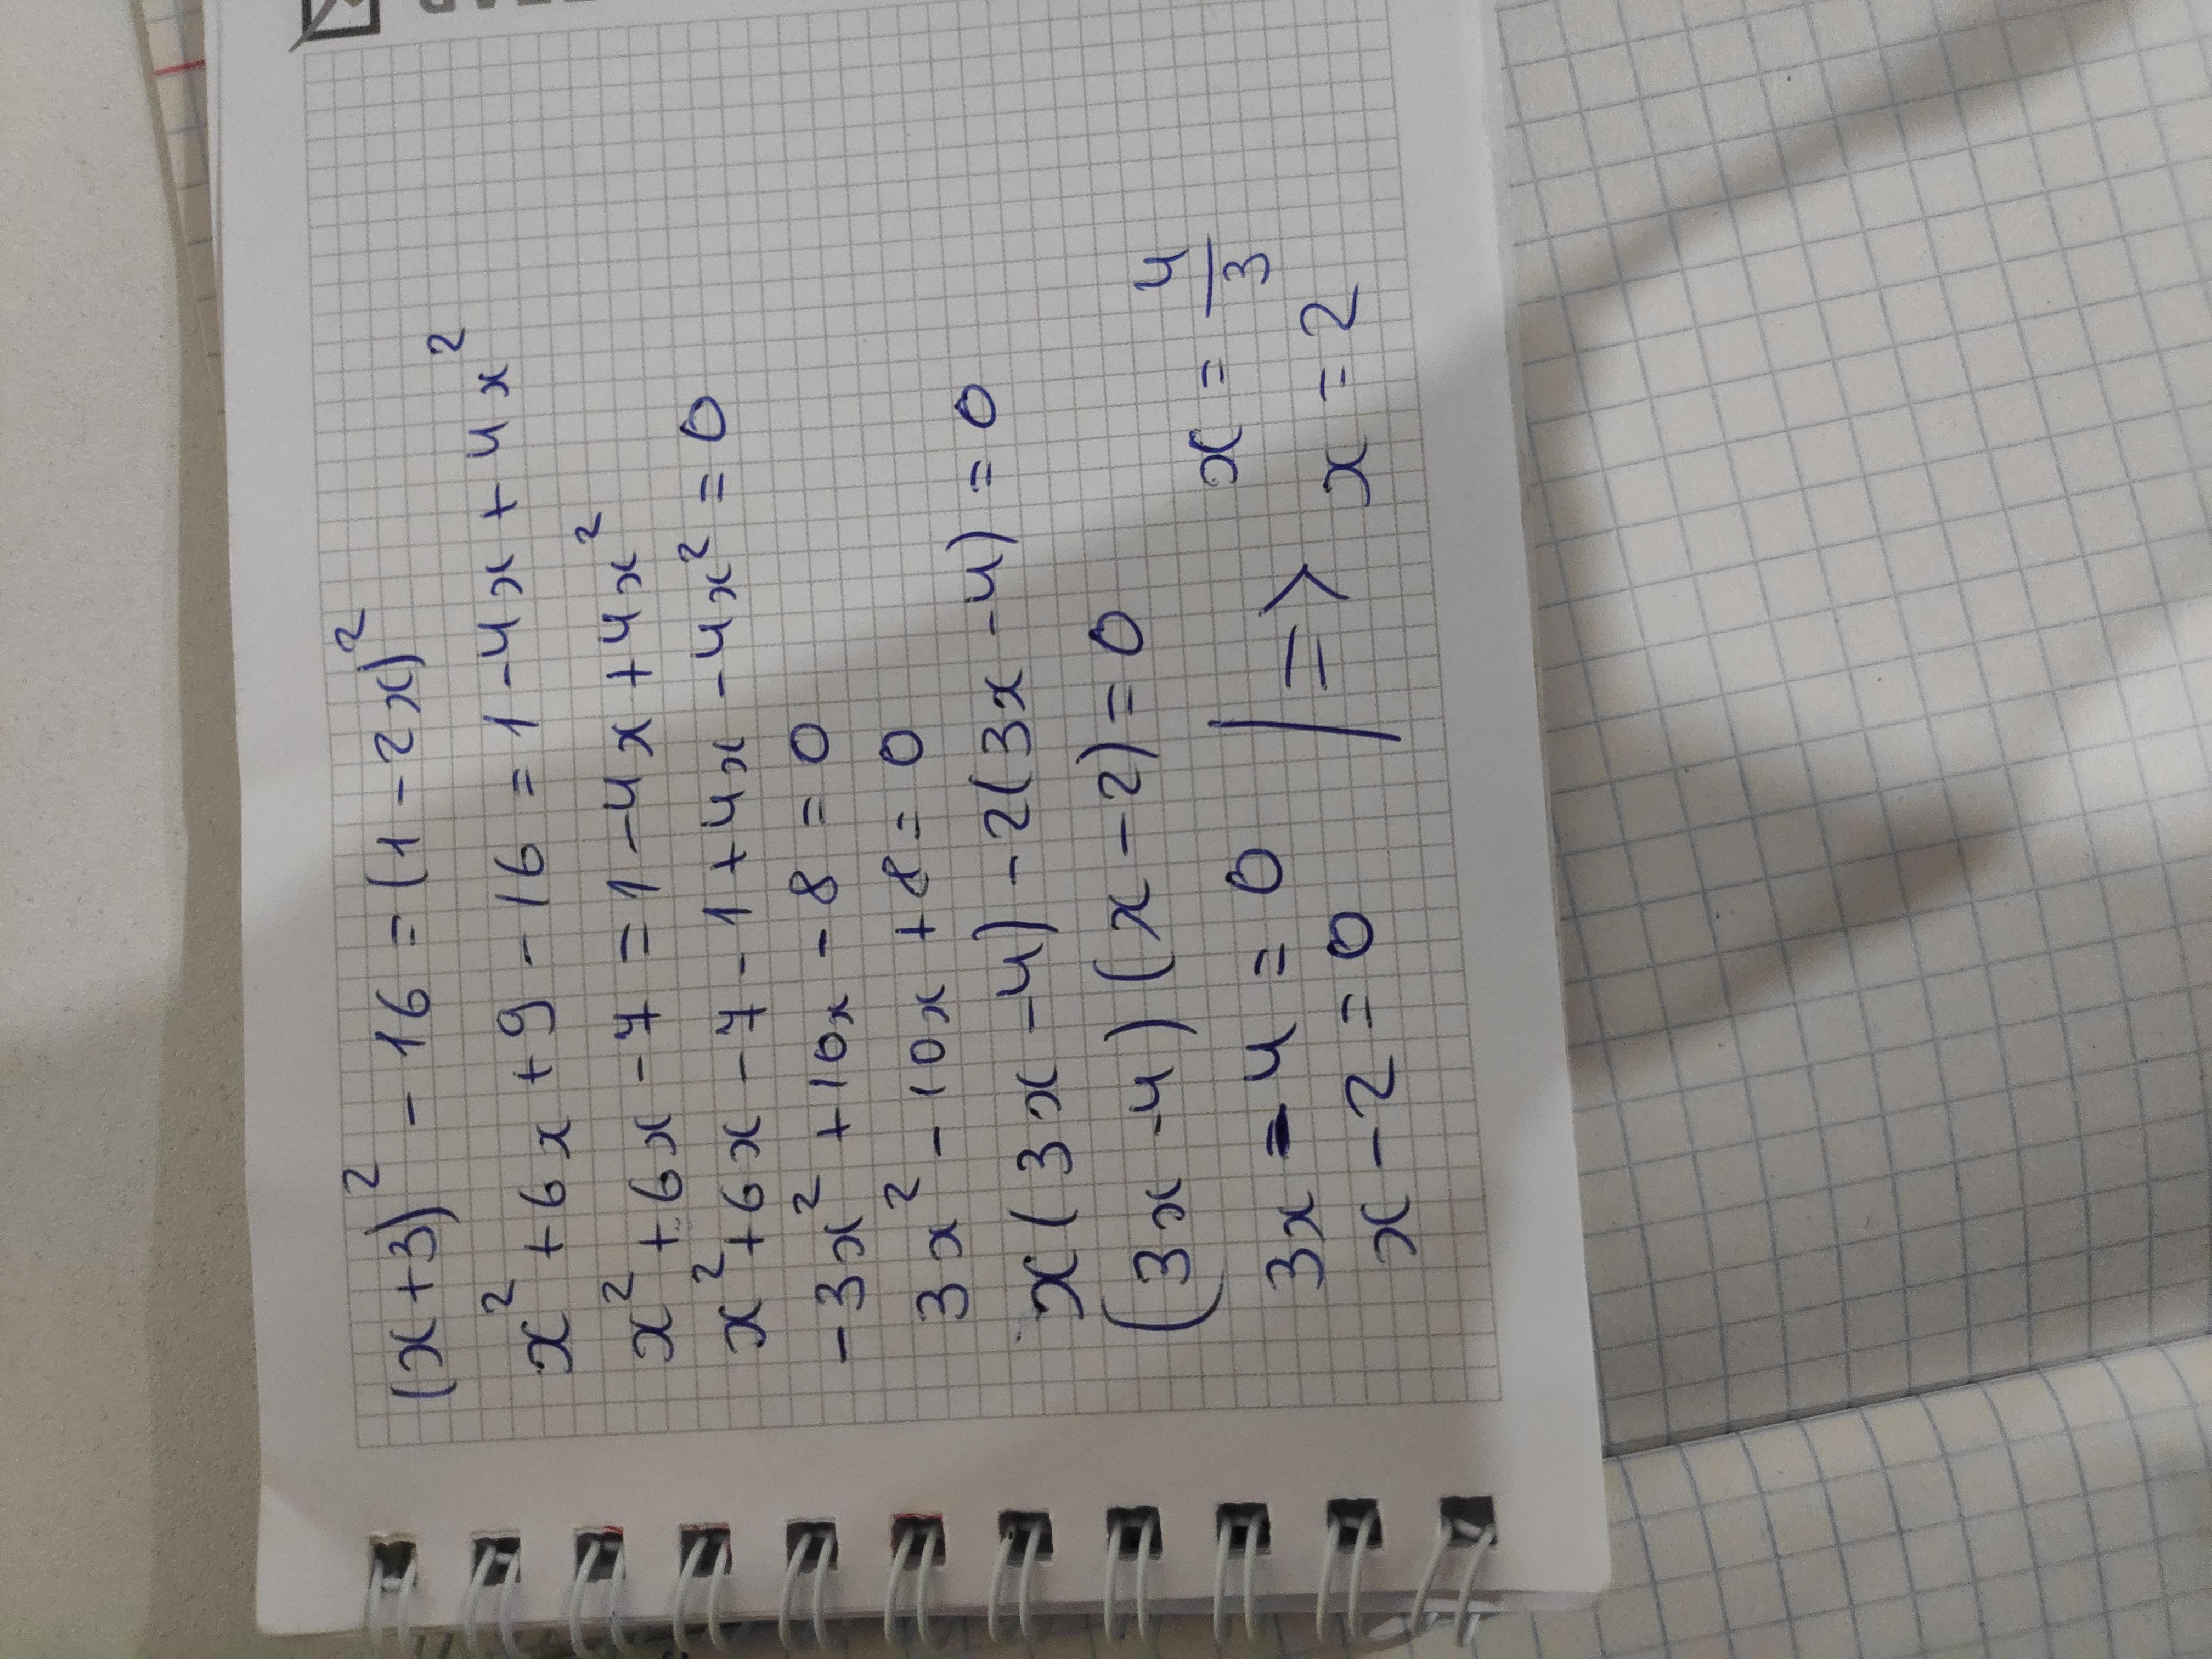 (x+3)² - 16 = (1 - 2x)²
x² + 6x + 9 - 16 = 1 - 4x + 4x²
x² + 6x - 7 = 1 - 4x + 4x²
x² + 6x - 7 - 1 + 4x - 4x² = 0
-3x² + 10x - 8 = 0
3x² - 10x + 8 = 0
x(3x - 4) - 2(3x - 4) = 0
(3x - 4)(x - 2) = 0
3x - 4 = 0 | => x = 4/3
x - 2 = 0 x = 2